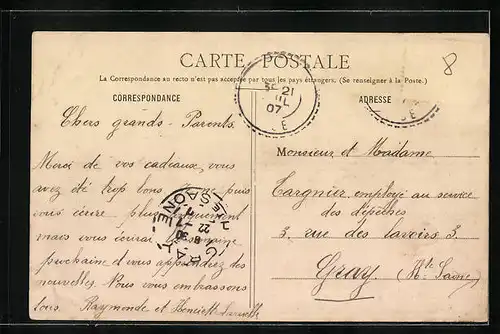 CARTE POSTALE
La Correspondance au recto n'est pas acceptée par tous les pays étrangers. (Se renseigner à la Poste.)
CORRESPONDANCE
ADRESSE
8
21
07
Chers grands-Parents.
Merci de vos cadeaux, vous
avez été trop bons. Je ne puis
vous écrire plus longuement
mais vous écrirai semaine
prochaine et vous apprendrez des
nouvelles. Nous vous embrassons
tous. Raymonde et
GRAY
Monsieur et Madame
Targnier employé au service
des dépêches
3, rue des lavoirs 3.
Gray (Hte Saône)